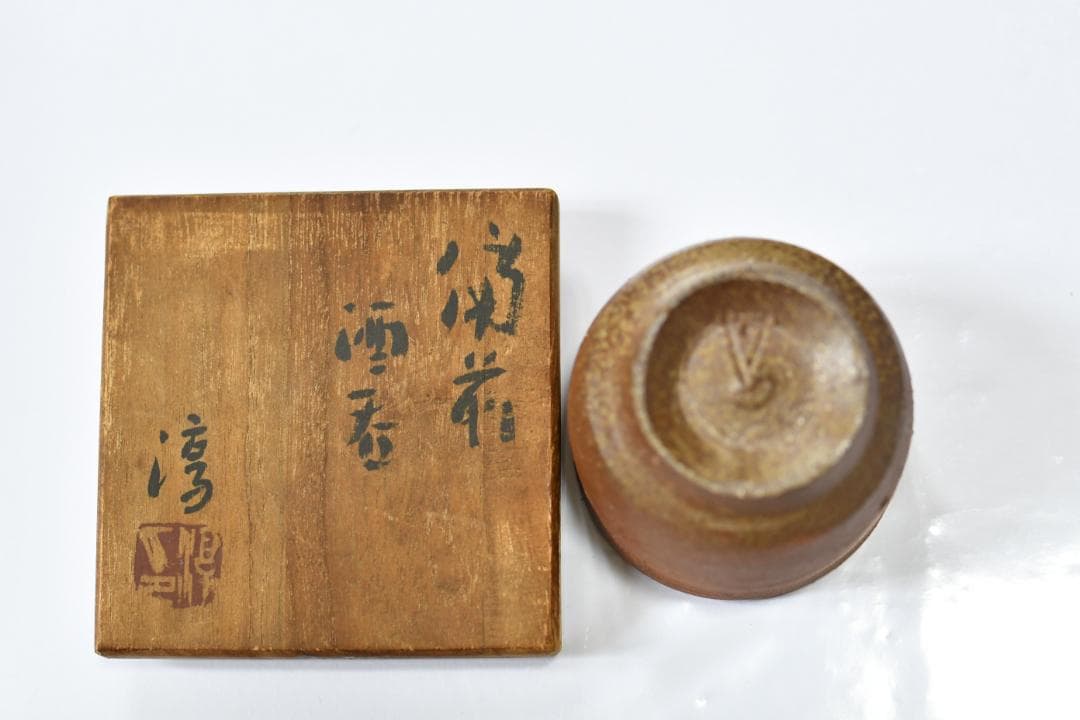 備前
酒呑
淳